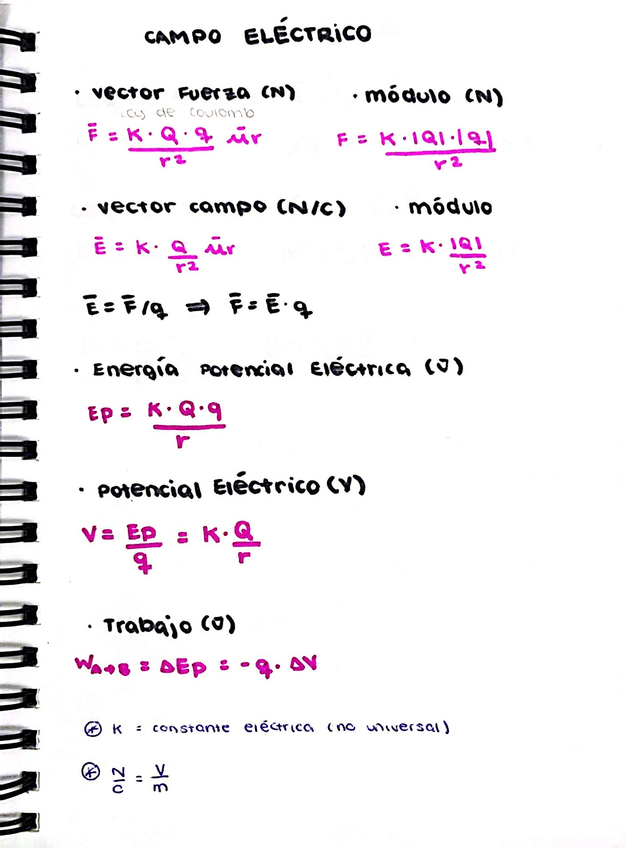 CAMPO ELÉCTRICO
· vector Fuerza (N) · módulo (N)
Ley de Coulomb
F̄ = K · Q · q / r² ūr F = K · |Q| · |q| / r²
· vector campo (N/C) · módulo
Ē = K · Q / r² ūr E = K · |Q| / r²
Ē = F̄ / q ⇒ F̄ = Ē · q
· Energía Potencial Eléctrica (J)
Ep = K · Q · q / r
· Potencial Eléctrico (V)
V = Ep / q = K · Q / r
· Trabajo (J)
W A→B = ΔEp = - q · ΔV
⊛ K = constante eléctrica (no universal)
⊛ N / C = V / m